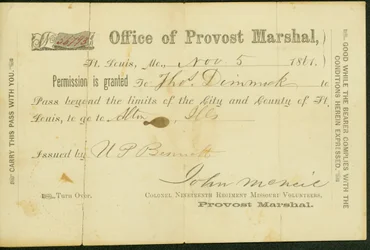 Office of Provost Marshal,
St. Louis, Mo., Nov. 5 1861.
Permission is granted To Thos. Dimmock to
Pass beyond the limits of the City and County of St.
Louis, to go to Alton Ills
Issued by
John McNeil
Colonel Nineteenth Regiment Missouri Volunteers.
Turn Over.
Provost Marshal.
CARRY THIS PASS WITH YOU.
GOOD WHILE THE BEARER COMPLIES WITH THE
CONDITIONS HEREIN EXPRESSED.